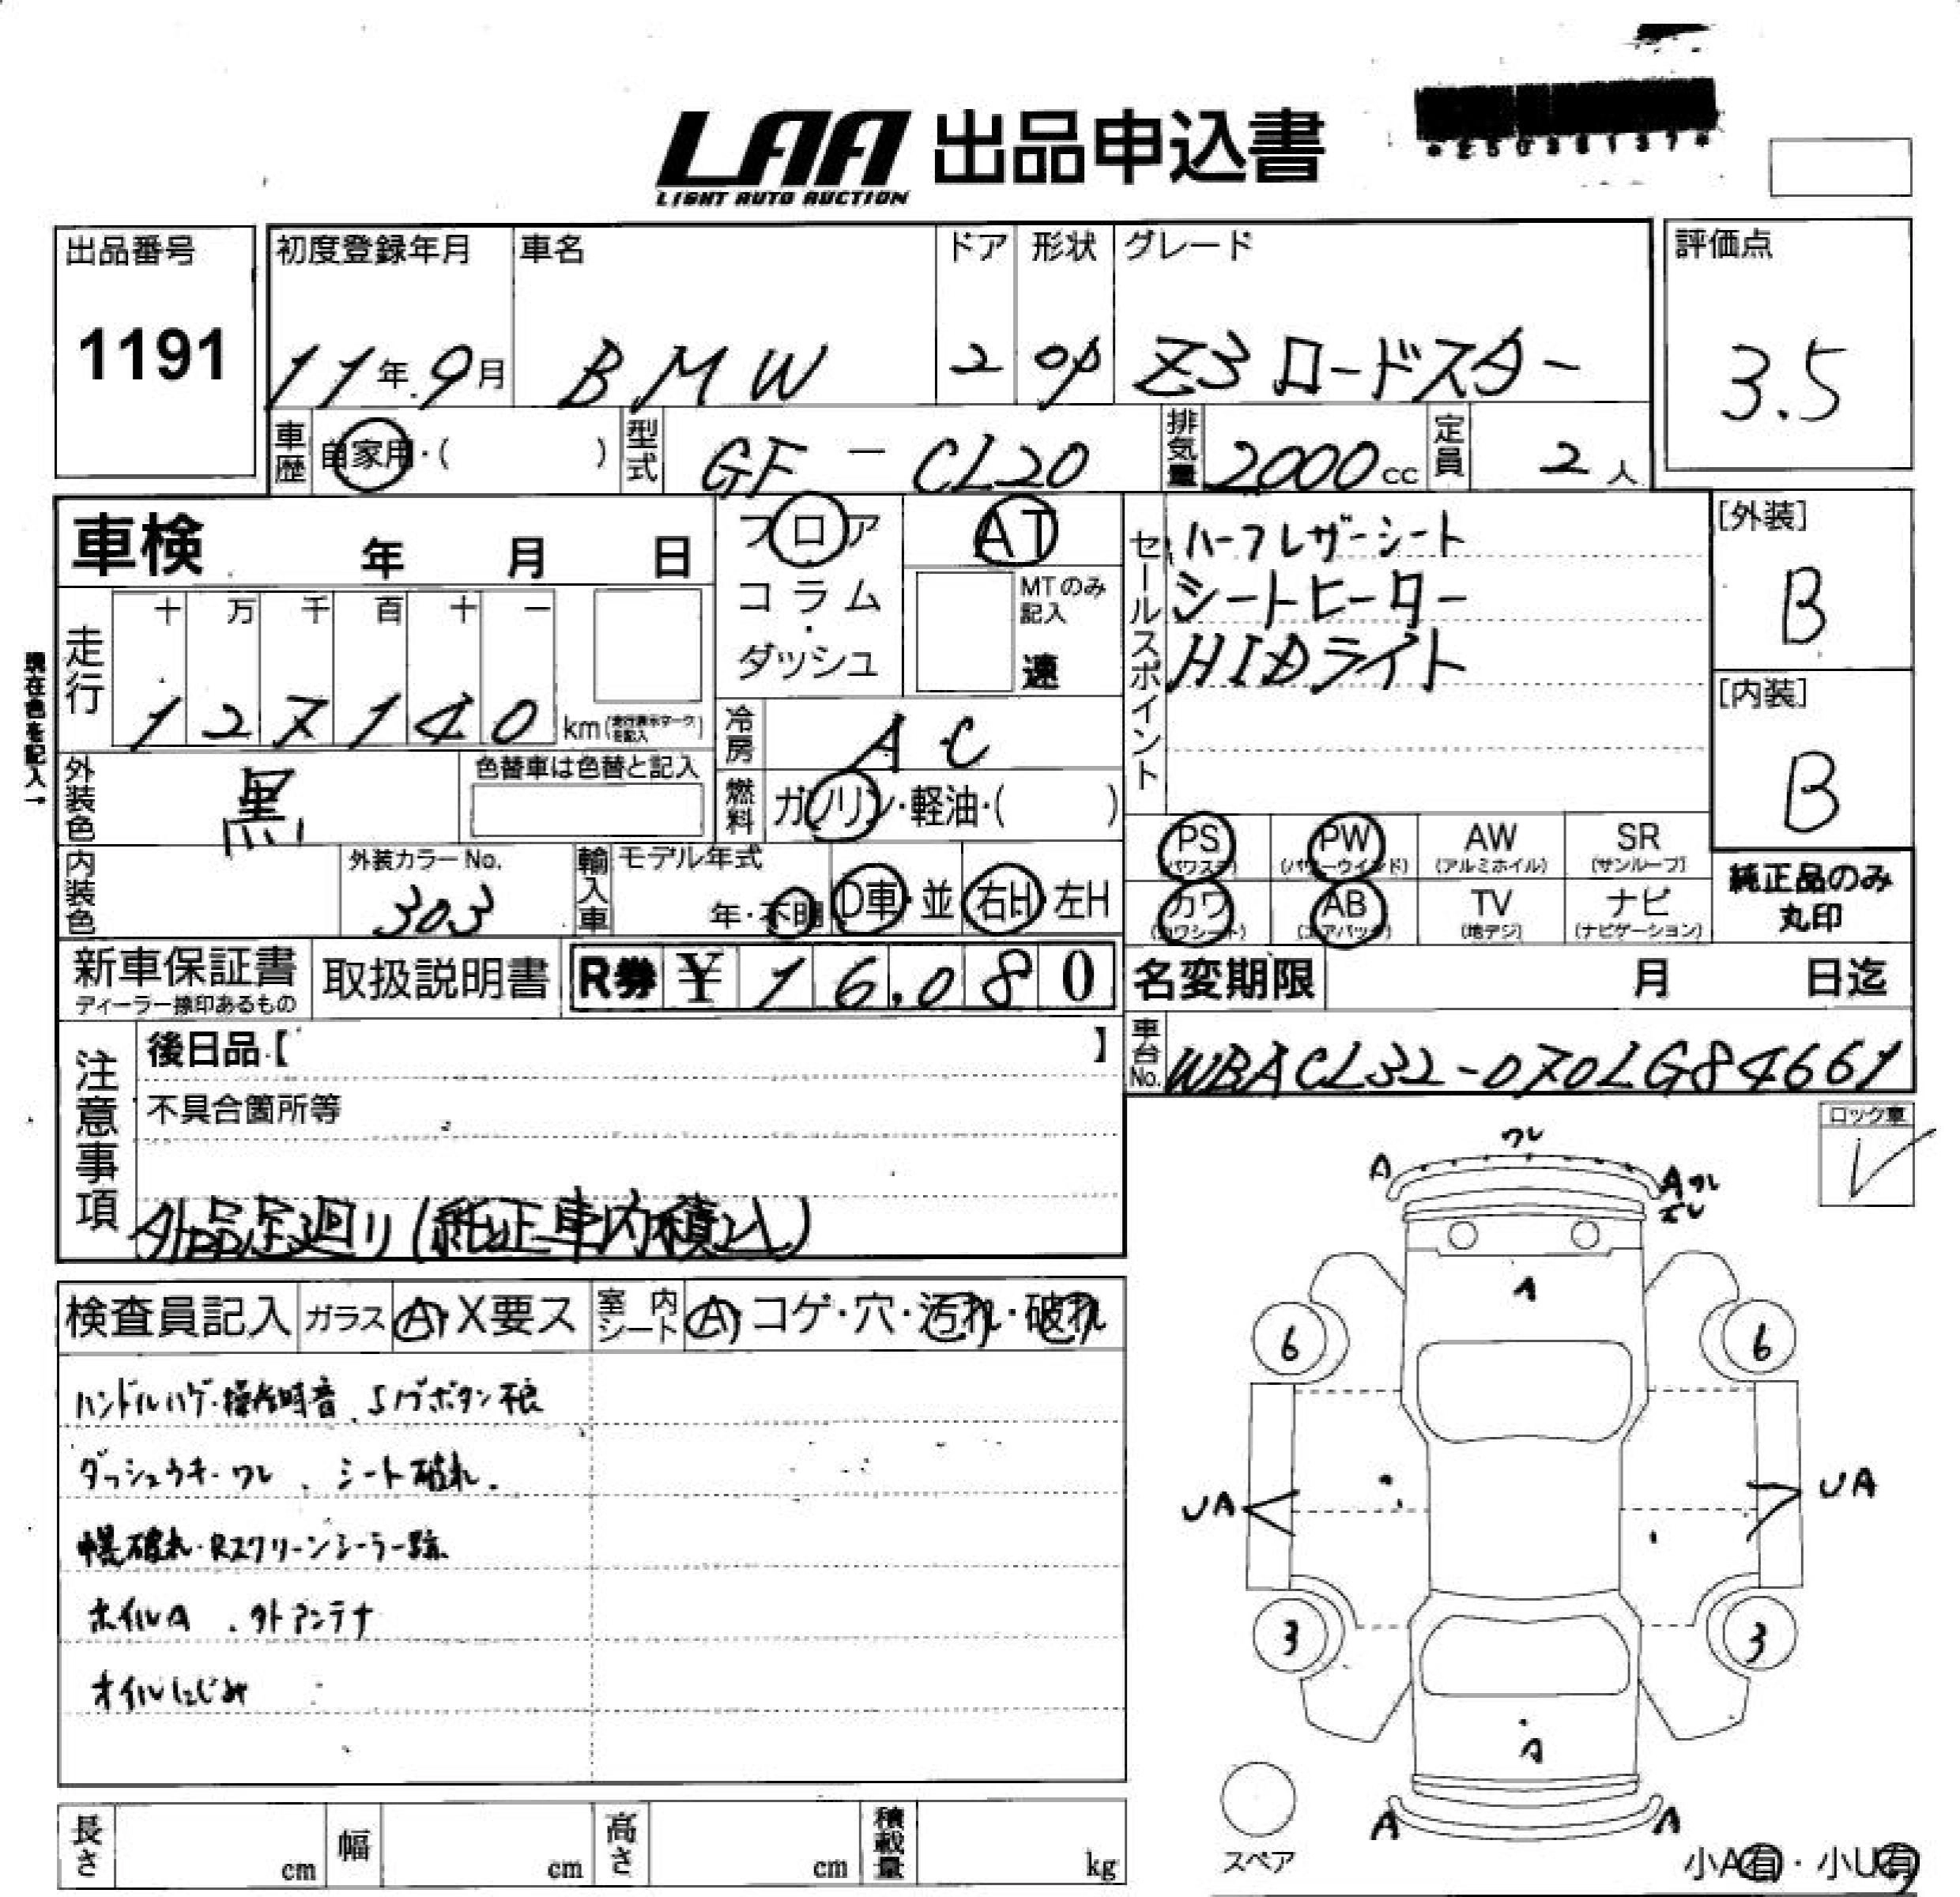 LAA 出品申込書
LIGHT AUTO AUCTION
出品番号
1191
初度登録年月
11年9月
車名
BMW
ドア
2
形状
OP
グレード
Z3 ロードスター
評価点
3.5
車歴
自家用・( )
型式
GF-CL20
排気量
2000cc
定員
2人
車検 年 月 日
フロア
コラム
・
ダッシュ
AT
MTのみ
記入
速
セールスポイント
ハーフレザーシート
シートヒーター
HIDライト
[外装]
B
[内装]
B
現在色を記入→
走行
十 万 千 百 十 一
1 2 7 1 4 0 km(走行表示マークを記入)
冷房
AC
外装色
黒
色替車は色替と記入
燃料
ガソリン・軽油・( )
PS
(パワステ)
PW
(パワーウインド)
AW
(アルミホイル)
SR
(サンルーフ)
カワ
(カワシート)
AB
(エアバッグ)
TV
(地デジ)
ナビ
(ナビゲーション)
純正品のみ
丸印
内装色
外装カラーNo.
303
輸入車
モデル年式
年・不明
D車・並
右H・左H
新車保証書
ディーラー捺印あるもの
取扱説明書
R券 ¥ 16,080
名変期限 月 日迄
車台No.
WBACL32-070LG84661
注意事項
後日品【 】
不具合箇所等
外品足廻り(純正車内積込)
ロック車
検査員記入
ガラス
A・X要ス
室内シート
A・コゲ・穴・汚れ・破れ
ハンドルハゲ・操作時音
ダッシュウキ・ワレ、シート破れ.
幌破れ・Rスクリーンシーラー跡
ホイルA . 外アンテナ
オイルにじみ
ワレ
A
A ワレ
ズレ
A
6
6
UA
UA
3
3
A
A
A
スペア
小A有・小U有
長さ cm
幅 cm
高さ cm
積載量 kg